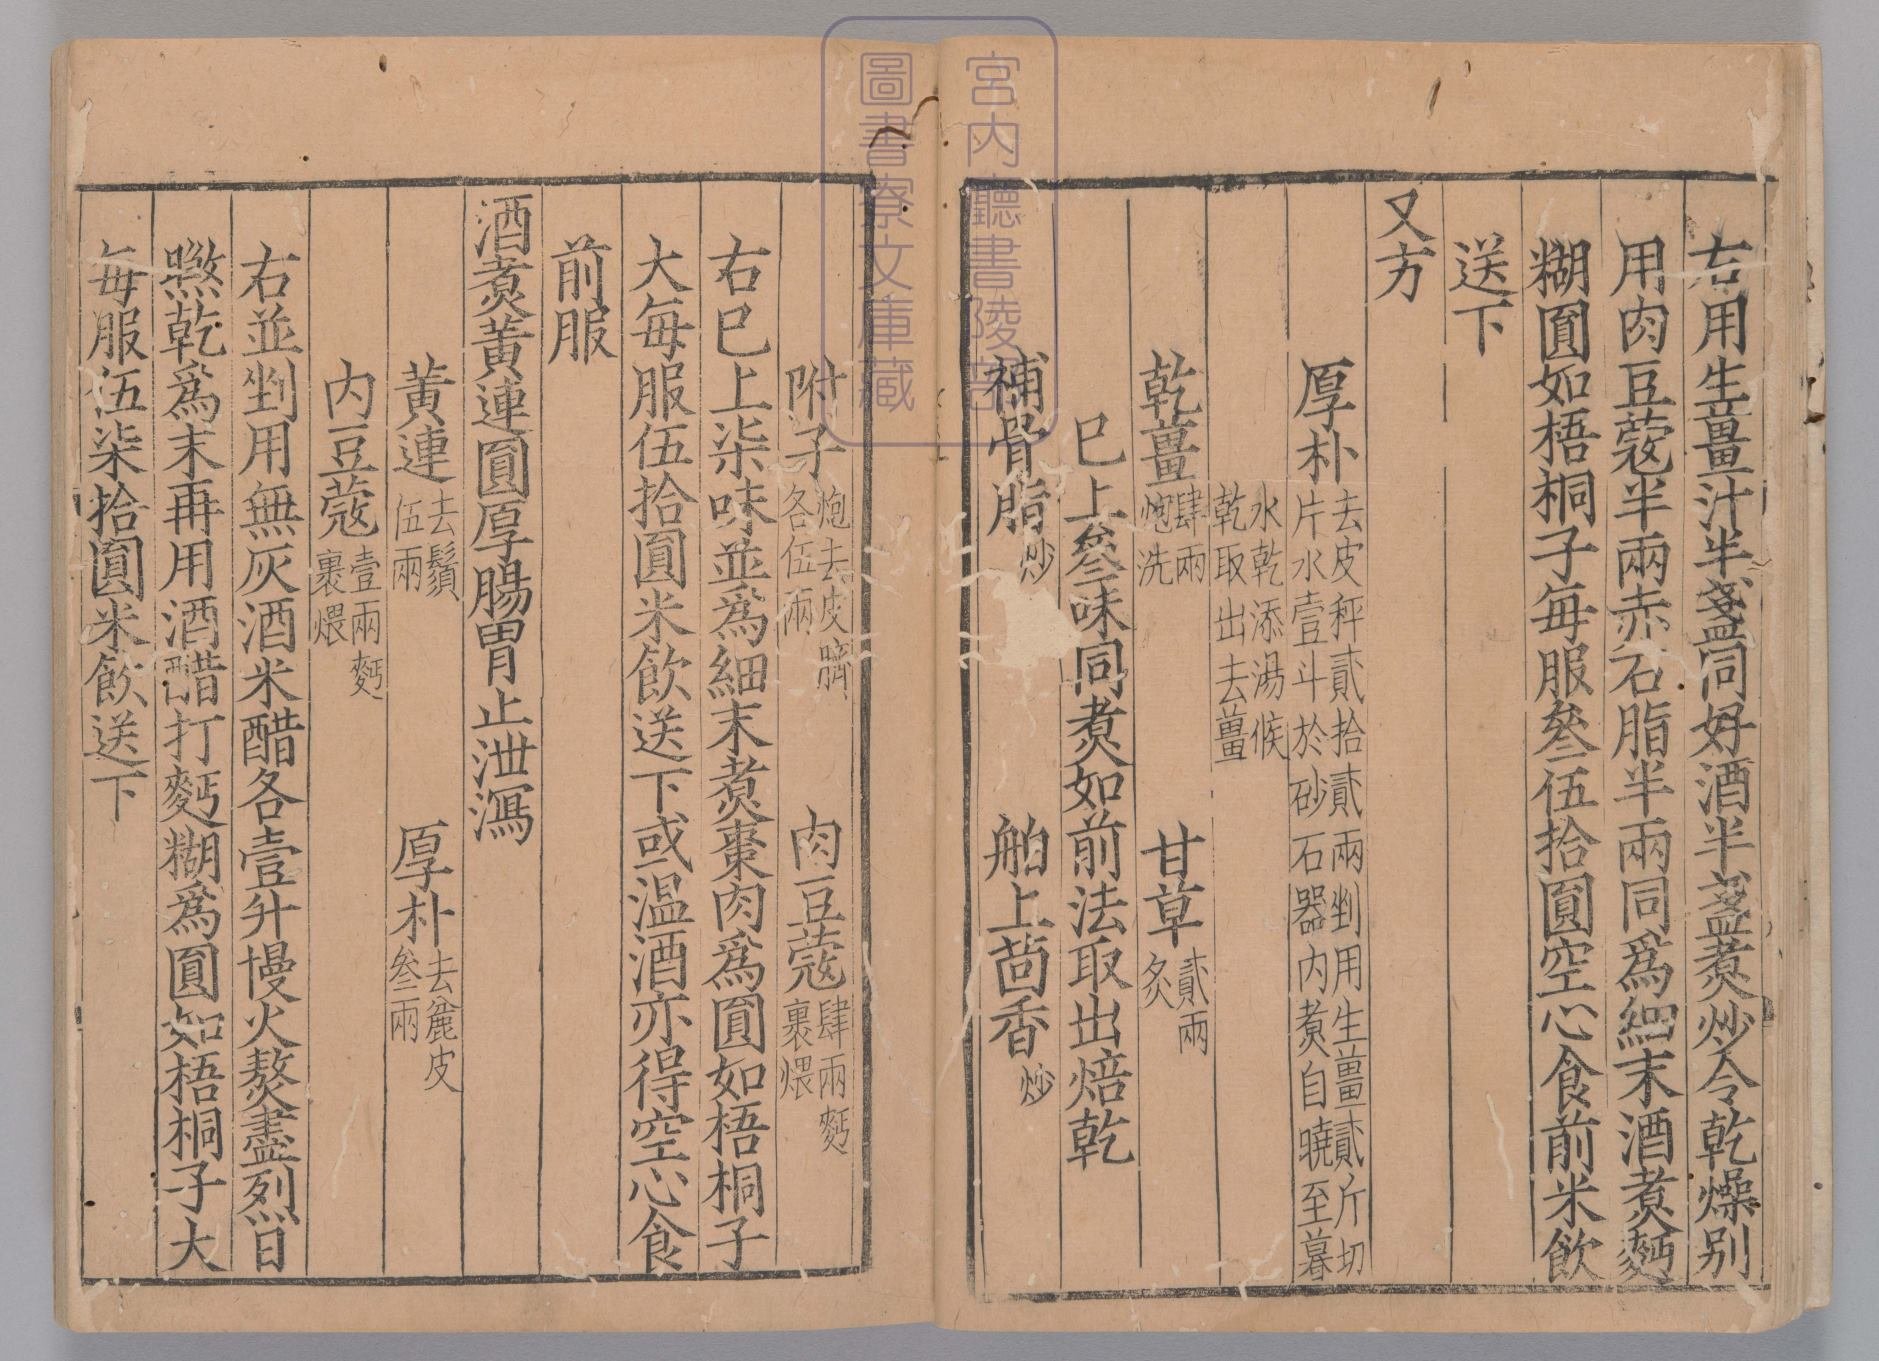 右用生薑汁半盞同好酒半盞煮炒令乾燥別
用肉豆蔻半兩赤石脂半兩同爲細末酒煮麪
糊圓如梧桐子每服叁伍拾圓空心食前米飲
送下
又方
厚朴去皮秤貳拾貳兩剉用生薑貳斤切片水壹斗於砂石器内煮自曉至暮
水乾添湯候乾取出去薑
乾薑肆兩炮洗 甘草貳兩炙
巳上叁味同煮如前法取出焙乾
補骨脂炒 舶上茴香炒
附子炮去皮臍各伍兩 肉豆蔻肆兩麪裹煨
右巳上柒味並爲細末煮棗肉爲圓如梧桐子
大每服伍拾圓米飲送下或温酒亦得空心食
前服
酒煮黃連圓厚腸胃止泄瀉
黃連去鬚伍兩 厚朴去麄皮叁兩
内豆蔻壹兩麪裹煨
右並剉用無灰酒米醋各壹升慢火熬盡烈日
煞乾爲末再用酒醋打麪糊爲圓如梧桐子大
每服伍柒拾圓米飲送下
宮内廳書陵部
圖書寮文庫蔵